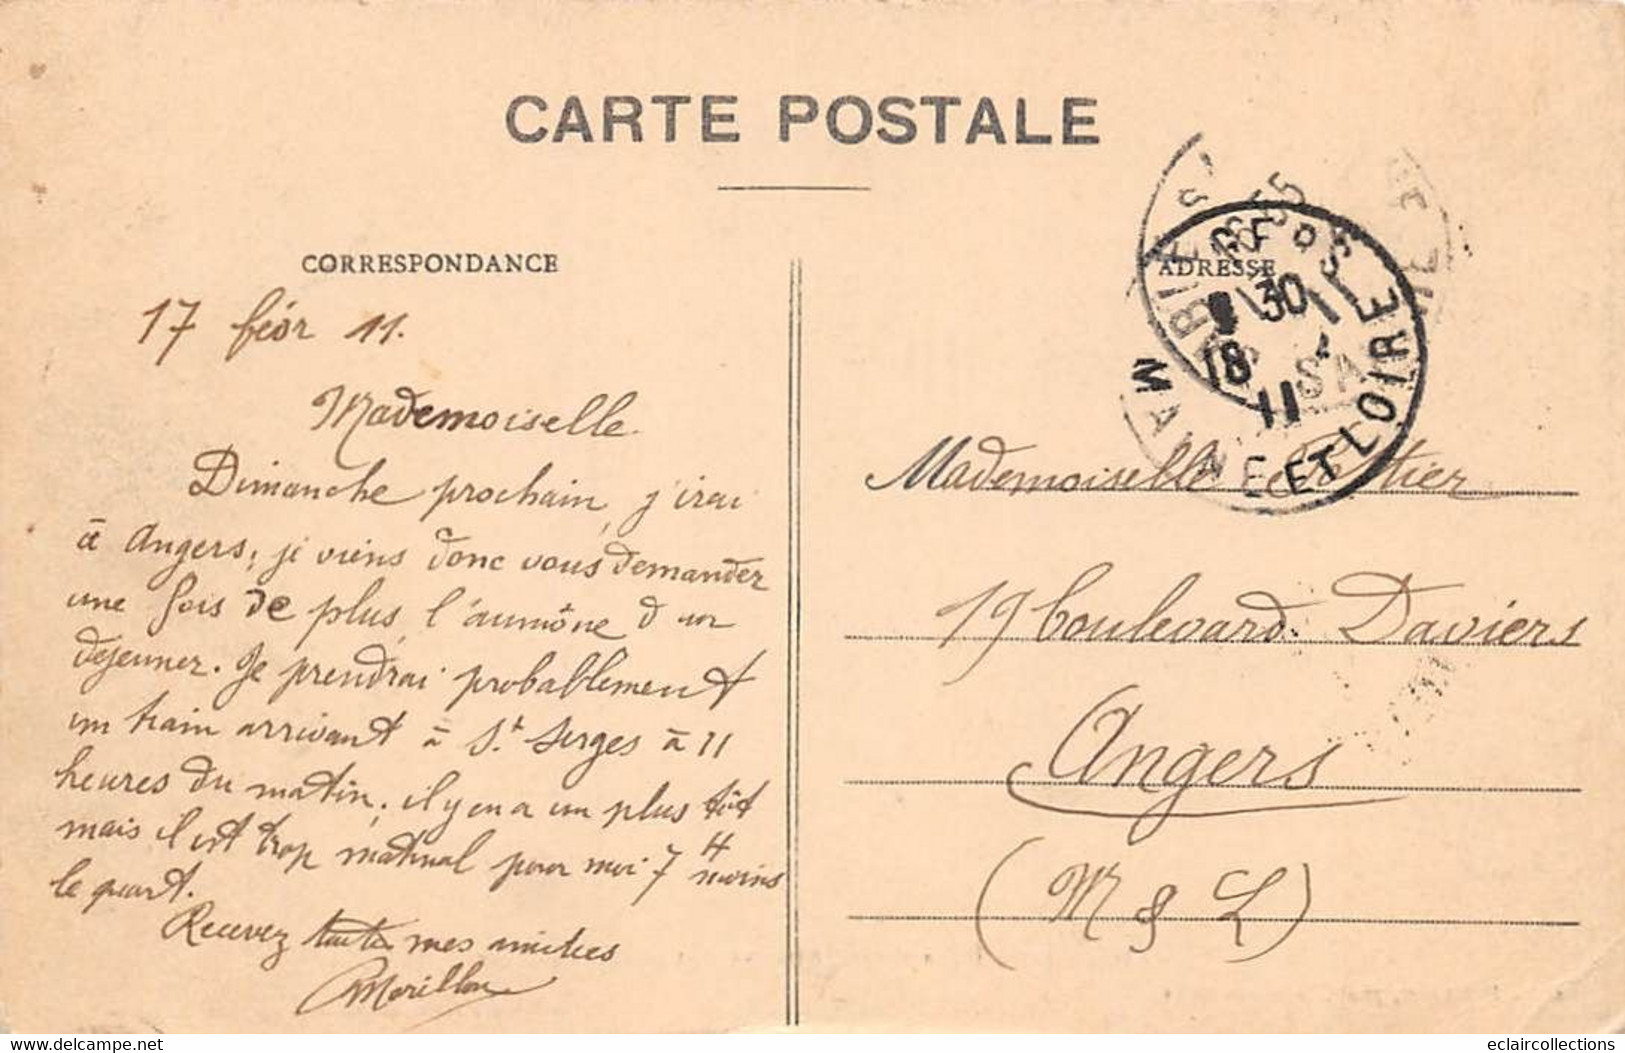 CARTE POSTALE
CORRESPONDANCE
ADRESSE
17 févr 11.
Mademoiselle.
Dimanche prochain, j'irai
à Angers, je viens donc vous demander
une fois de plus l'aumône d'un
dejeuner. Je prendrai probablement
un train arrivant à St Serges à 11
heures du matin, il y en a un plus tôt
mais il est trop matinal pour moi 7 H moins
le quart.
Recevez toute mes amitiés
AMorillon
Mademoiselle
19 boulevard Daviers
Angers
(M & L)
GERS
9 30
18
11
MAINE ET LOIRE
eclaircollections